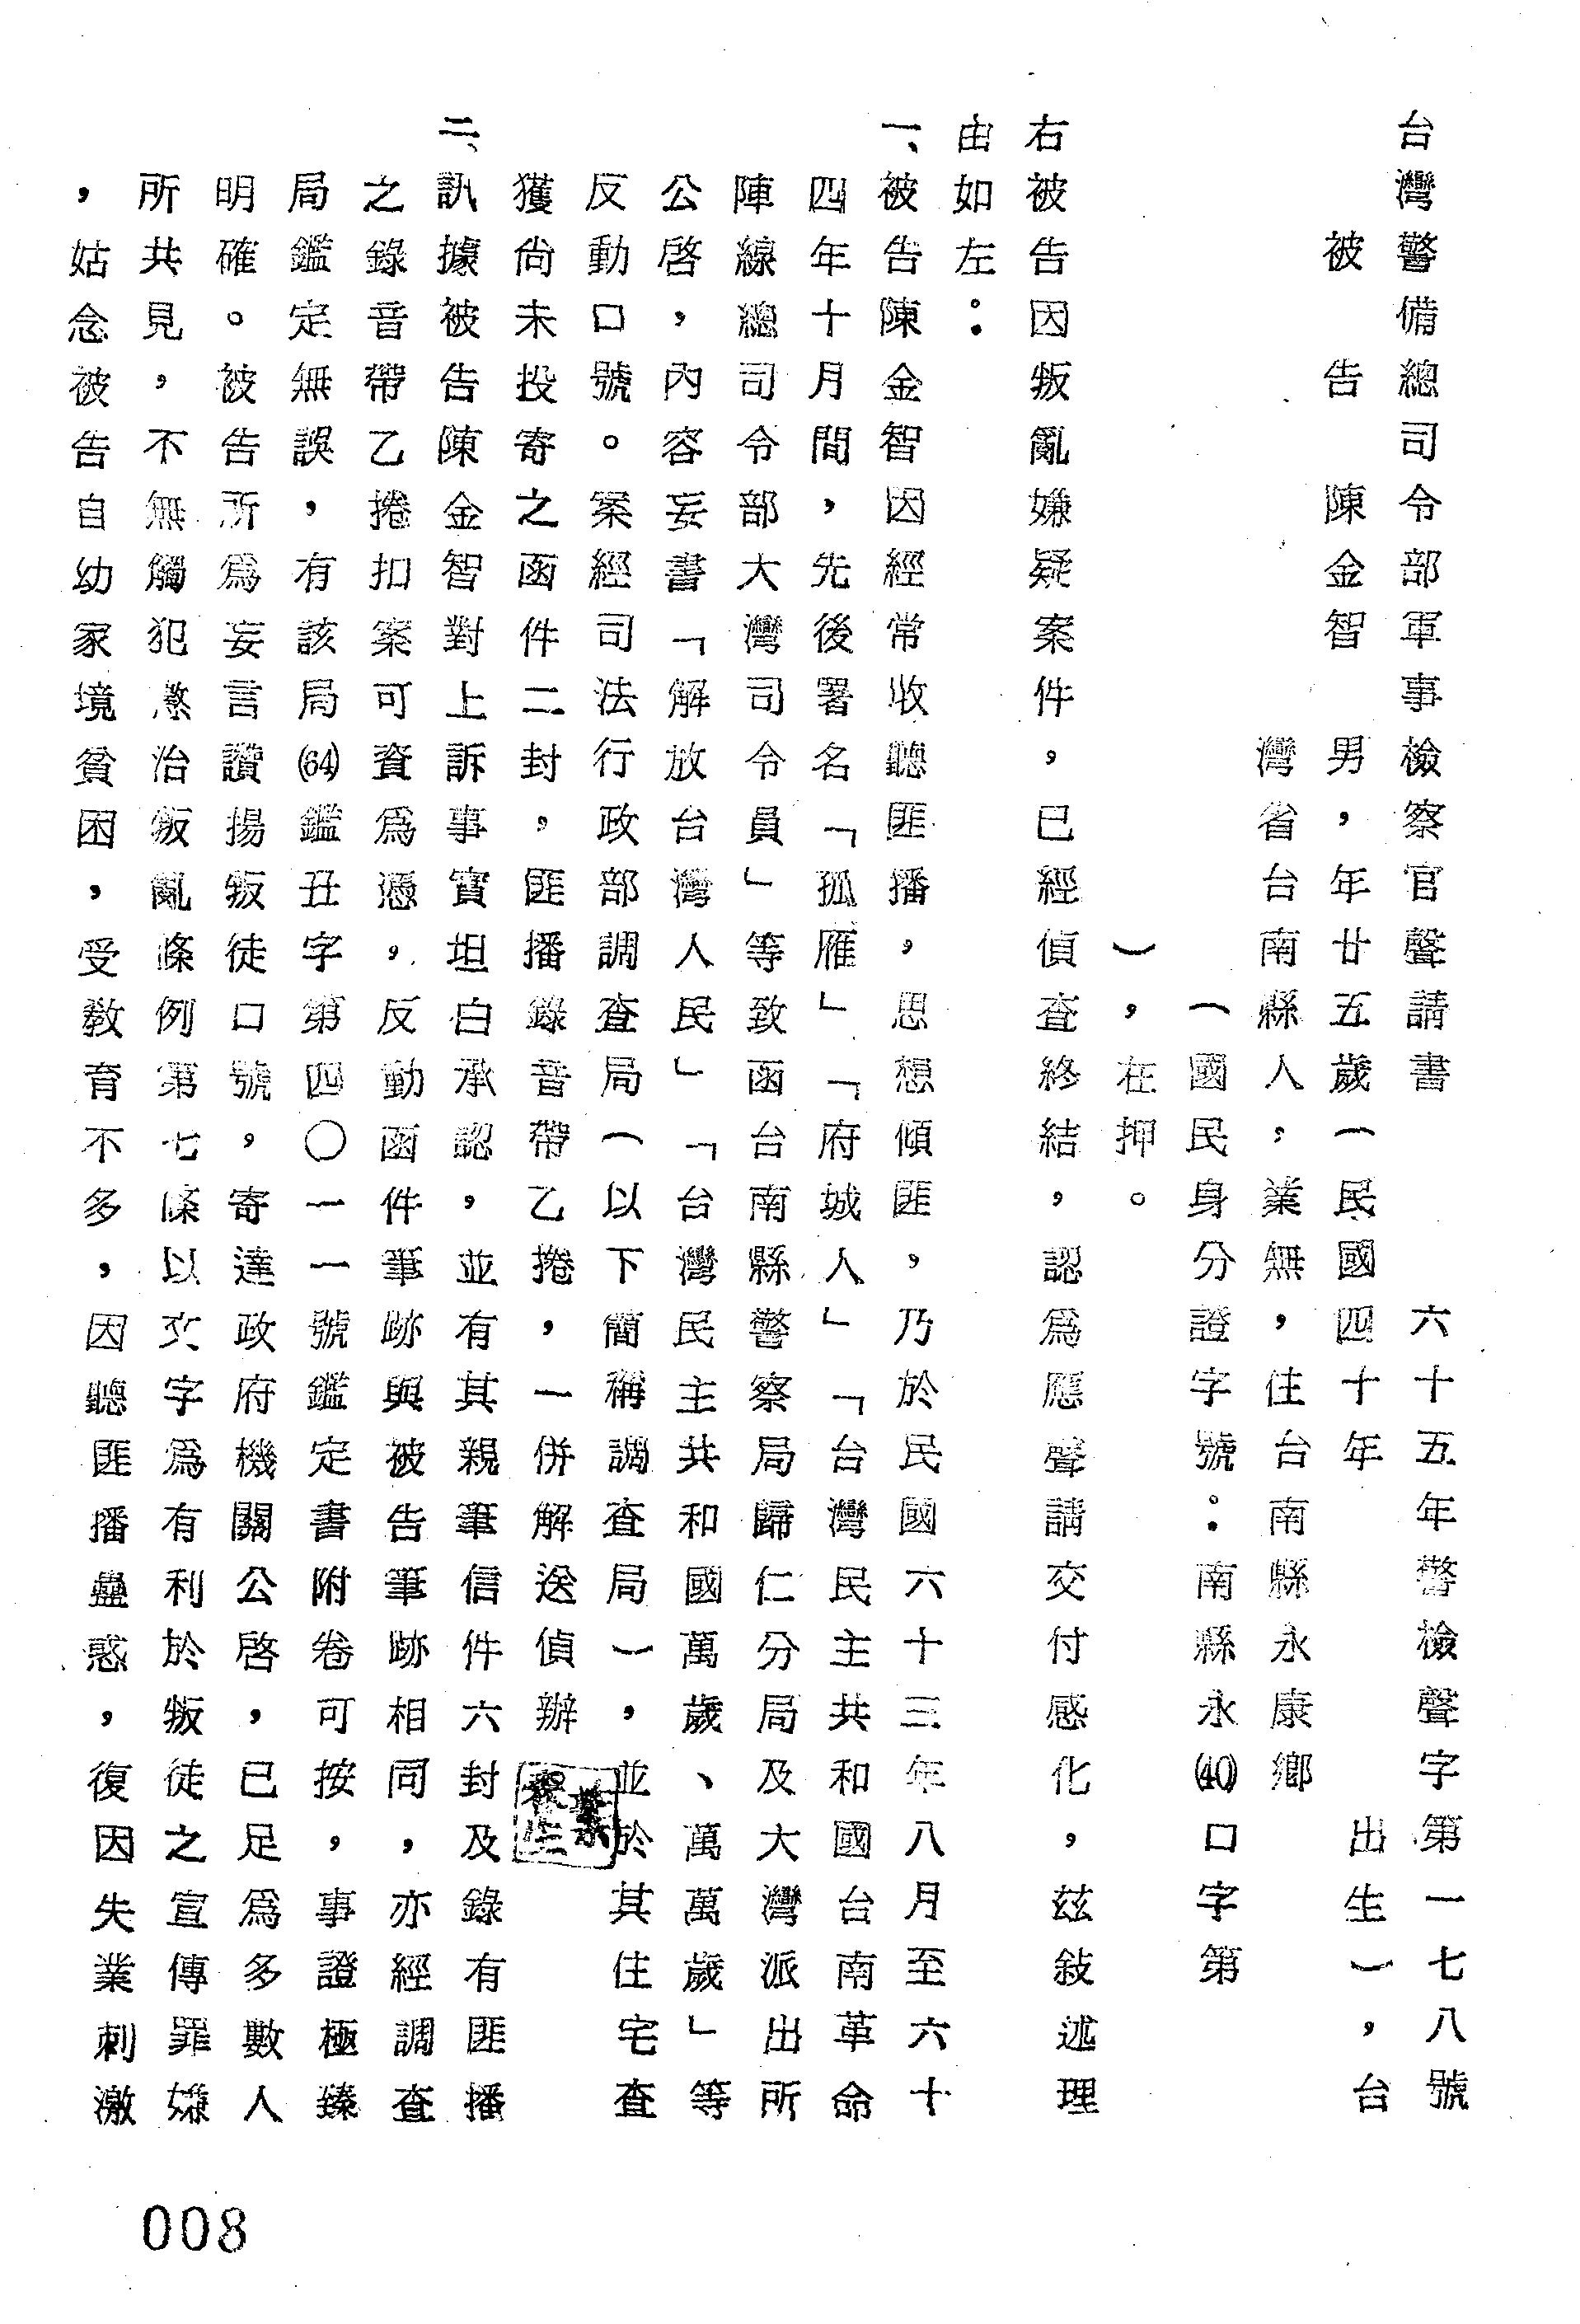 台灣警備總司令部軍事檢察官聲請書　六十五年警檢聲字第一七八號
被告　陳金智　男，年廿五歲（民國四十年　出生），台
灣省台南縣人，業無，住台南縣永康鄉
（國民身分證字號：南縣永(40)口字第
），在押。
右被告因叛亂嫌疑案件，已經偵查終結，認為應聲請交付感化，茲敍述理
由如左：
一、被告陳金智因經常收聽匪播，思想傾匪，乃於民國六十三年八月至六十
四年十月間，先後署名「孤雁」「府城人」「台灣民主共和國台南革命
陣線總司令部大灣司令員」等致函台南縣警察局歸仁分局及大灣派出所
公啓，內容妄書「解放台灣人民」「台灣民主共和國萬歲、萬萬歲」等
反動口號。案經司法行政部調查局（以下簡稱調查局），並於其住宅查
獲尚未投寄之函件二封，匪播錄音帶乙捲，一併解送偵辦
二、訊據被告陳金智對上訴事實坦白承認，並有其親筆信件六封及錄有匪播
之錄音帶乙捲扣案可資為憑，反動函件筆跡與被告筆跡相同，亦經調查
局鑑定無誤，有該局(64)鑑丑字第四〇一一號鑑定書附卷可按，事證極臻
明確。被告所為妄言讚揚叛徒口號，寄達政府機關公啓，已足為多數人
所共見，不無觸犯懲治叛亂條例第七條以文字為有利於叛徒之宣傳罪嫌
，姑念被告自幼家境貧困，受教育不多，因聽匪播蠱惑，復因失業刺激
008